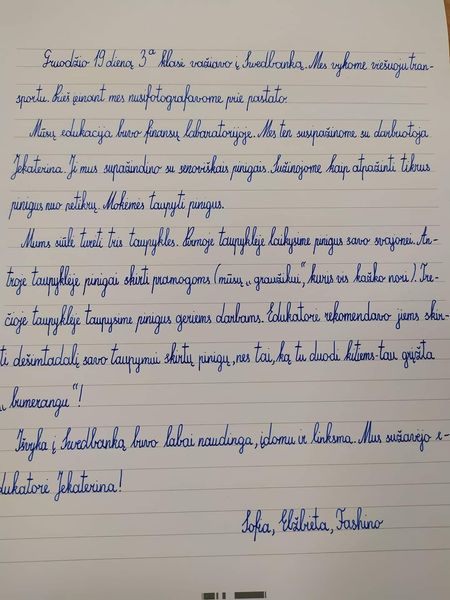 Gruodžio 19 dieną 3ᵃ klasė važiavo į Swedbanką. Mes vykome viešuoju tran-
sportu. Prieš įeinant mes nusifotografavome prie pastato.
Mūsų edukacija buvo finansų labaratorijoje. Mes ten susipažinome su darbuotoja
Jekaterina. Ji mus supažindino su senoviškais pinigais. Sužinojome kaip atpažinti tikrus
pinigus nuo netikrų. Mokėmės taupyti pinigus.
Mums siūlė turėti tris taupykles. Pirmoje taupyklėje laikysime pinigus savo svajonei. An-
troje taupyklėje pinigai skirti pramogoms (mūsų „graužikui", kuris vis kažko nori). Tre-
čioje taupyklėje taupysime pinigus geriems darbams. Edukatorė rekomendavo jiems skir-
ti dešimtadalį savo taupymui skirtų pinigų, nes tai, ką tu duodi kitiems - tau grįžta
„bumerangu"!
Išvyka į Swedbanką buvo labai naudinga, įdomu ir linksma. Mus sužavėjo e-
dukatorė Jekaterina!
Sofia, Elžbieta, Fashino